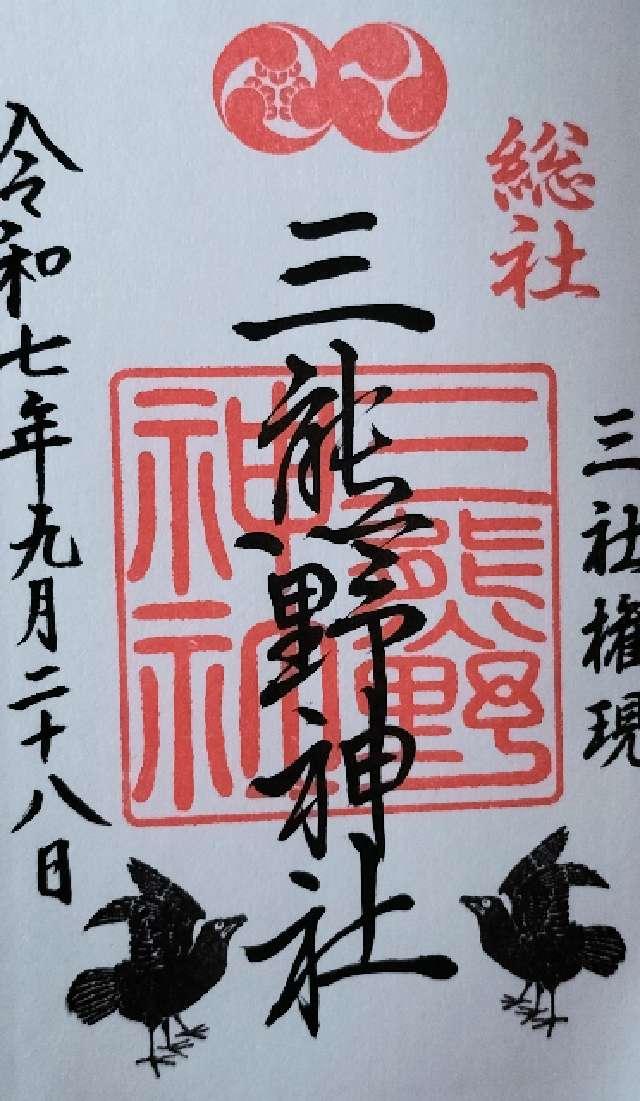 総社
三社権現
三熊野神社
三熊野
神社
令和七年九月二十八日